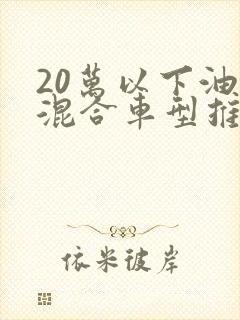 20萬以下油
混合車型推
依米彼岸